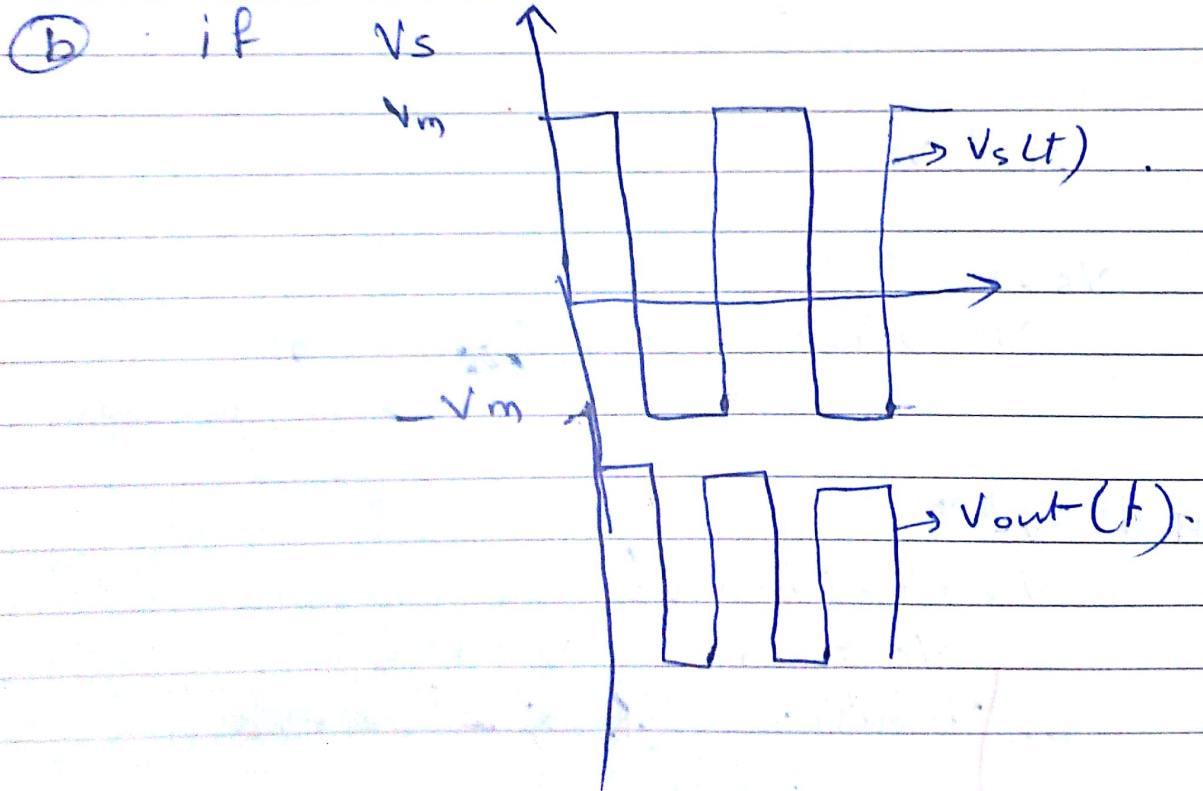 b if Vs
Vm
→ Vs(t)
-Vm
→ Vout(t).